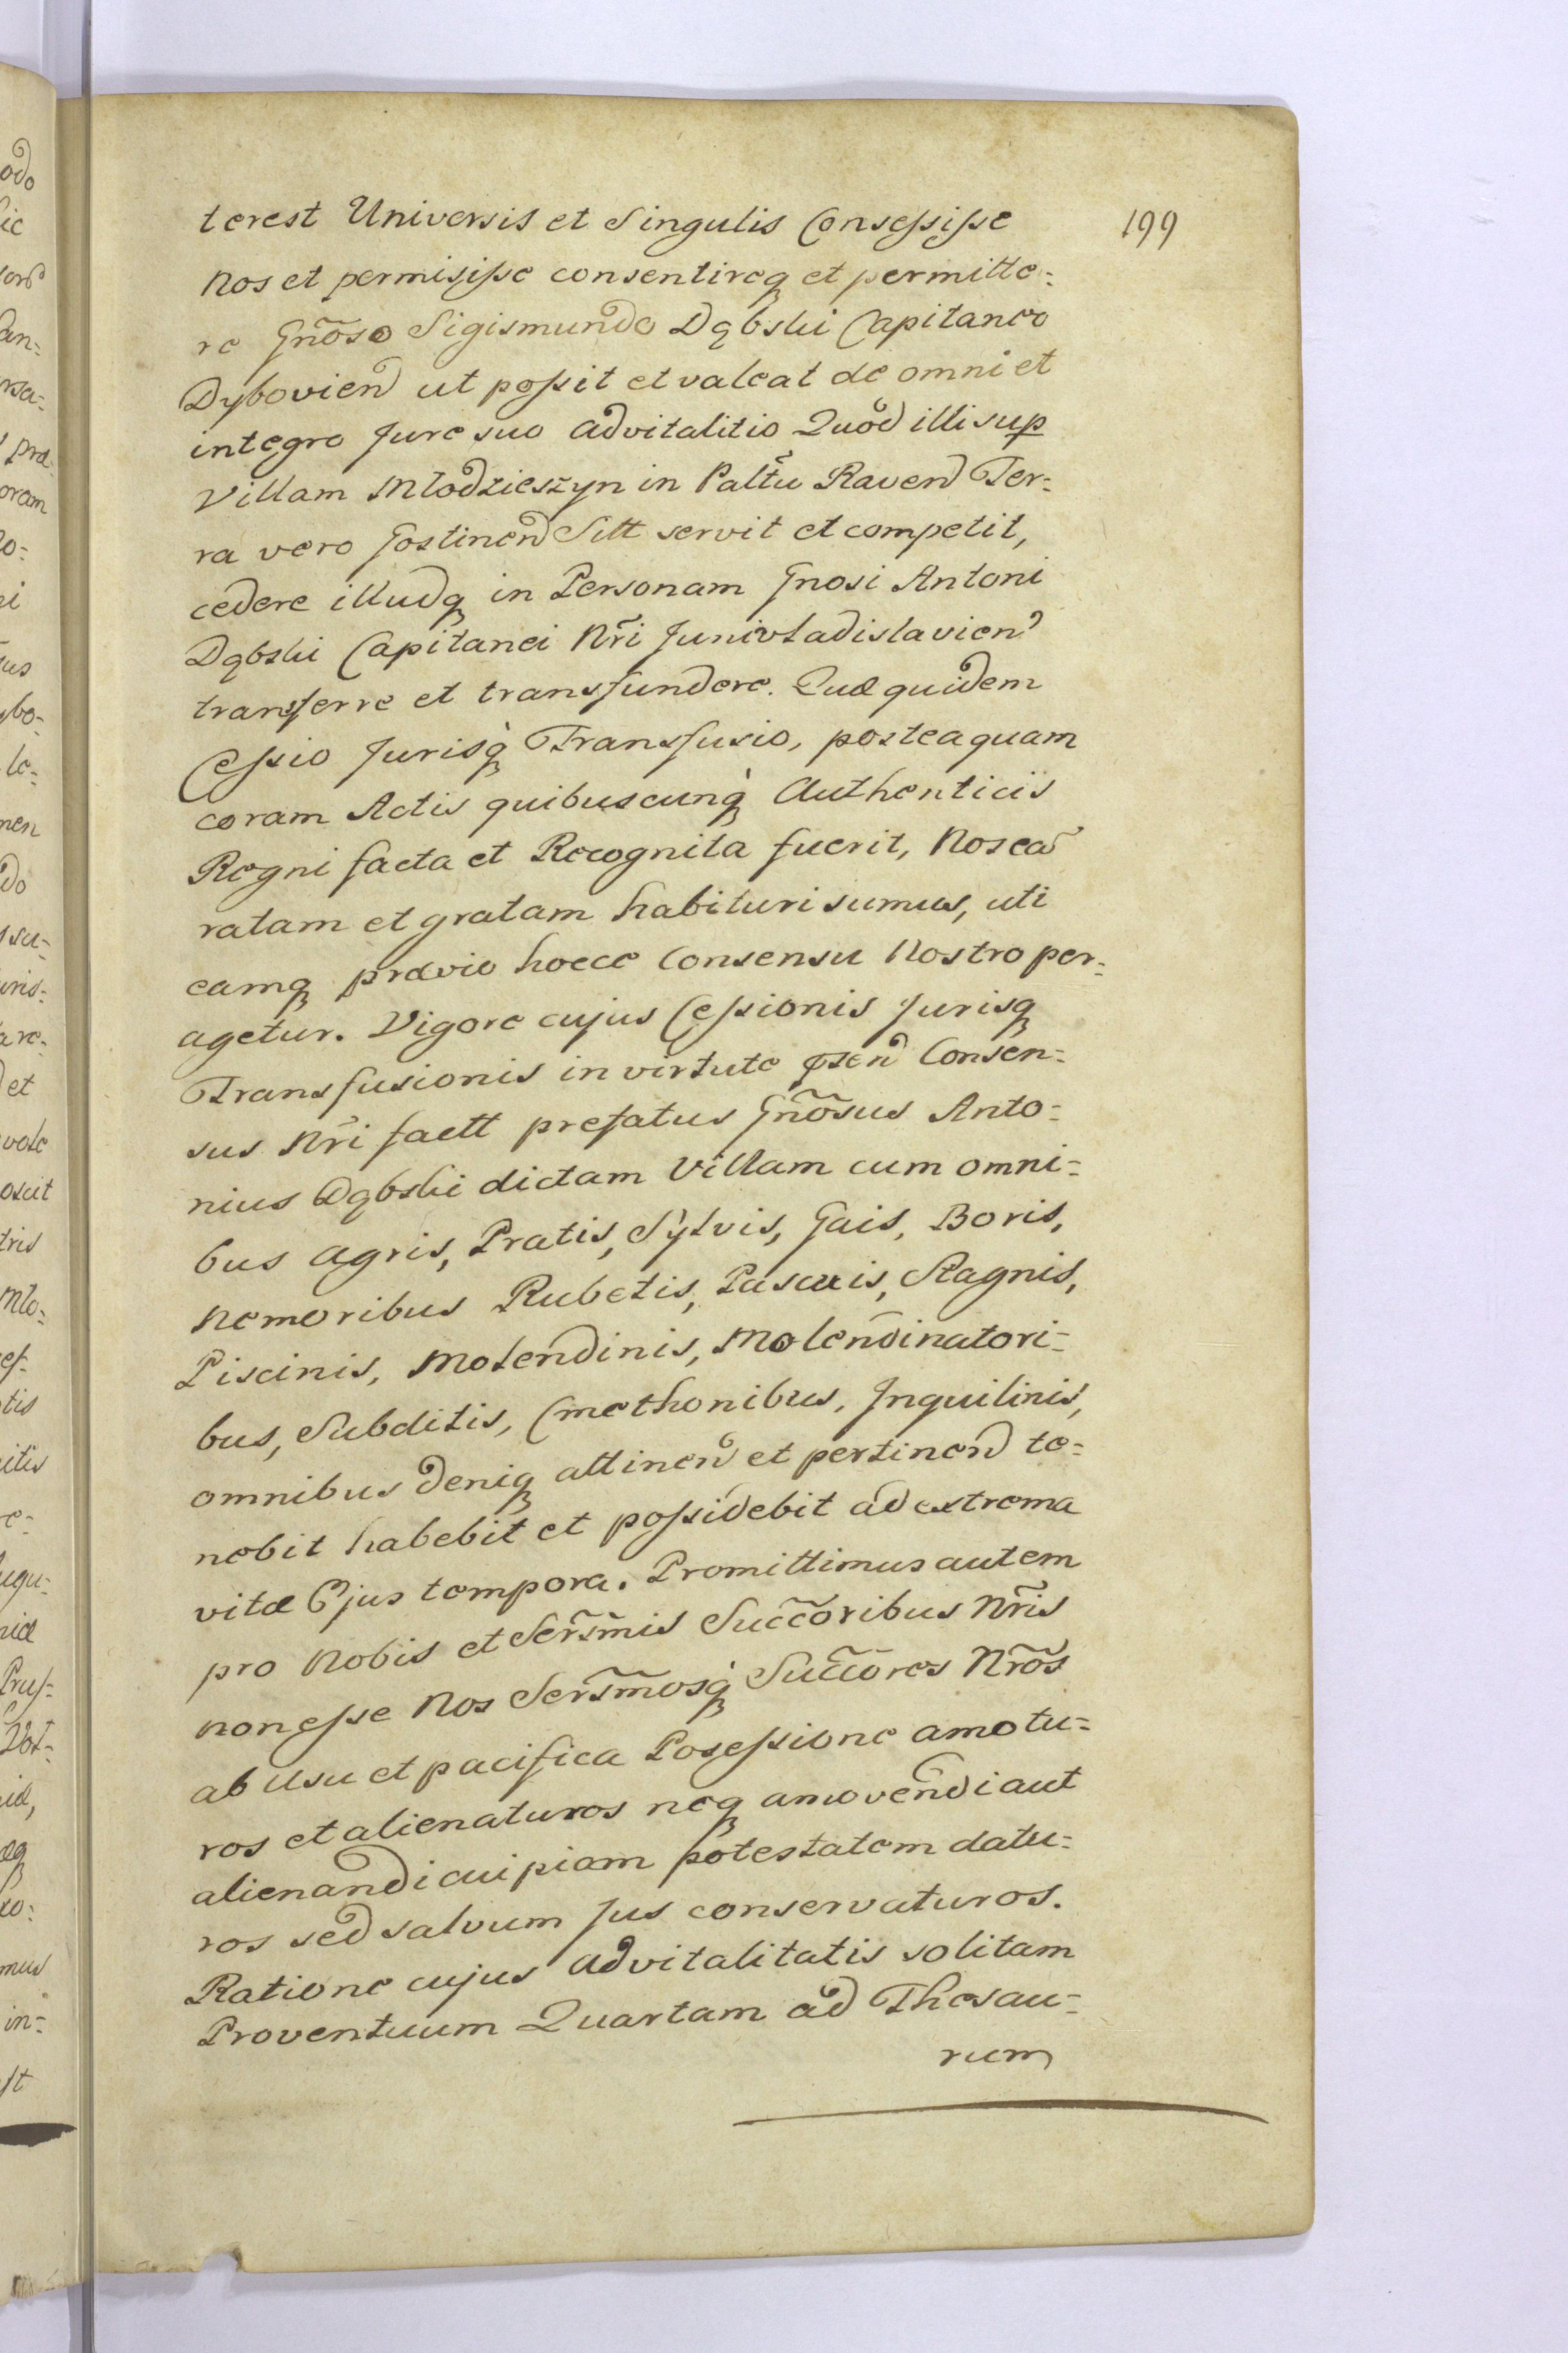 199
terest Universis et Singulis Consessisse
Nos et permisisse consentireq́ et permitte=
re Gnõso Sigismundo Dąbski Capitaneo
Dybovien ut possit et valeat de omni et
integro Jure suo advitalitio Quod illi sup
Villam Młodzieszyn in Paltũ Raven Ter=
ra vero Gostinen Sitt servit et competit,
cedere illudq́ in Personam Gnosi Antoni
Dąbski Capitanei Nr̃i Junivladislavien
transferre et transfundere. Quæ quidem
Cessio Jurisq́ Transfusio, posteaquam
coram Actis quibuscunq́ Authenticis
Regni facta et Recognita fuerit, Nos eã
ratam et gratam habituri sumus, uti
eamq́ prævio hocce Consensu Nostro per=
agetur. Vigore cujus Cessionis Jurisq́
Transfusionis in virtute psen Consen=
sus Nr̃i factt prefatus Gnõsus Anto=
nius Dąbski dictam Villam cum omni=
bus agris, Pratis, Sylvis, Gais, Boris,
Nemoribus Rubetis, Pascuis, Stagnis,
Piscinis, Molendinis, Molendinatori=
bus, Subditis, Cmethonibus, Inquilinis,
omnibus deniq́ attinen et pertinen te=
nebit habebit et possidebit ad extrema
vitæ Ejus tempora. Promittimus autem
pro Nobis et Sers̃mis Succ̃oribus Nr̃is
non esse Nos Sers̃mosq́ Succ̃ores Nrõs
ab Usu et pacifica Posessione amotu=
ros et alienaturos neq́ amovendi aut
alienandi cuipiam potestatem datu=
ros sed salvum Jus conservaturos.
Ratione cujus advitalitatis solitam
Proventuum Quartam ad Thesau=
rum